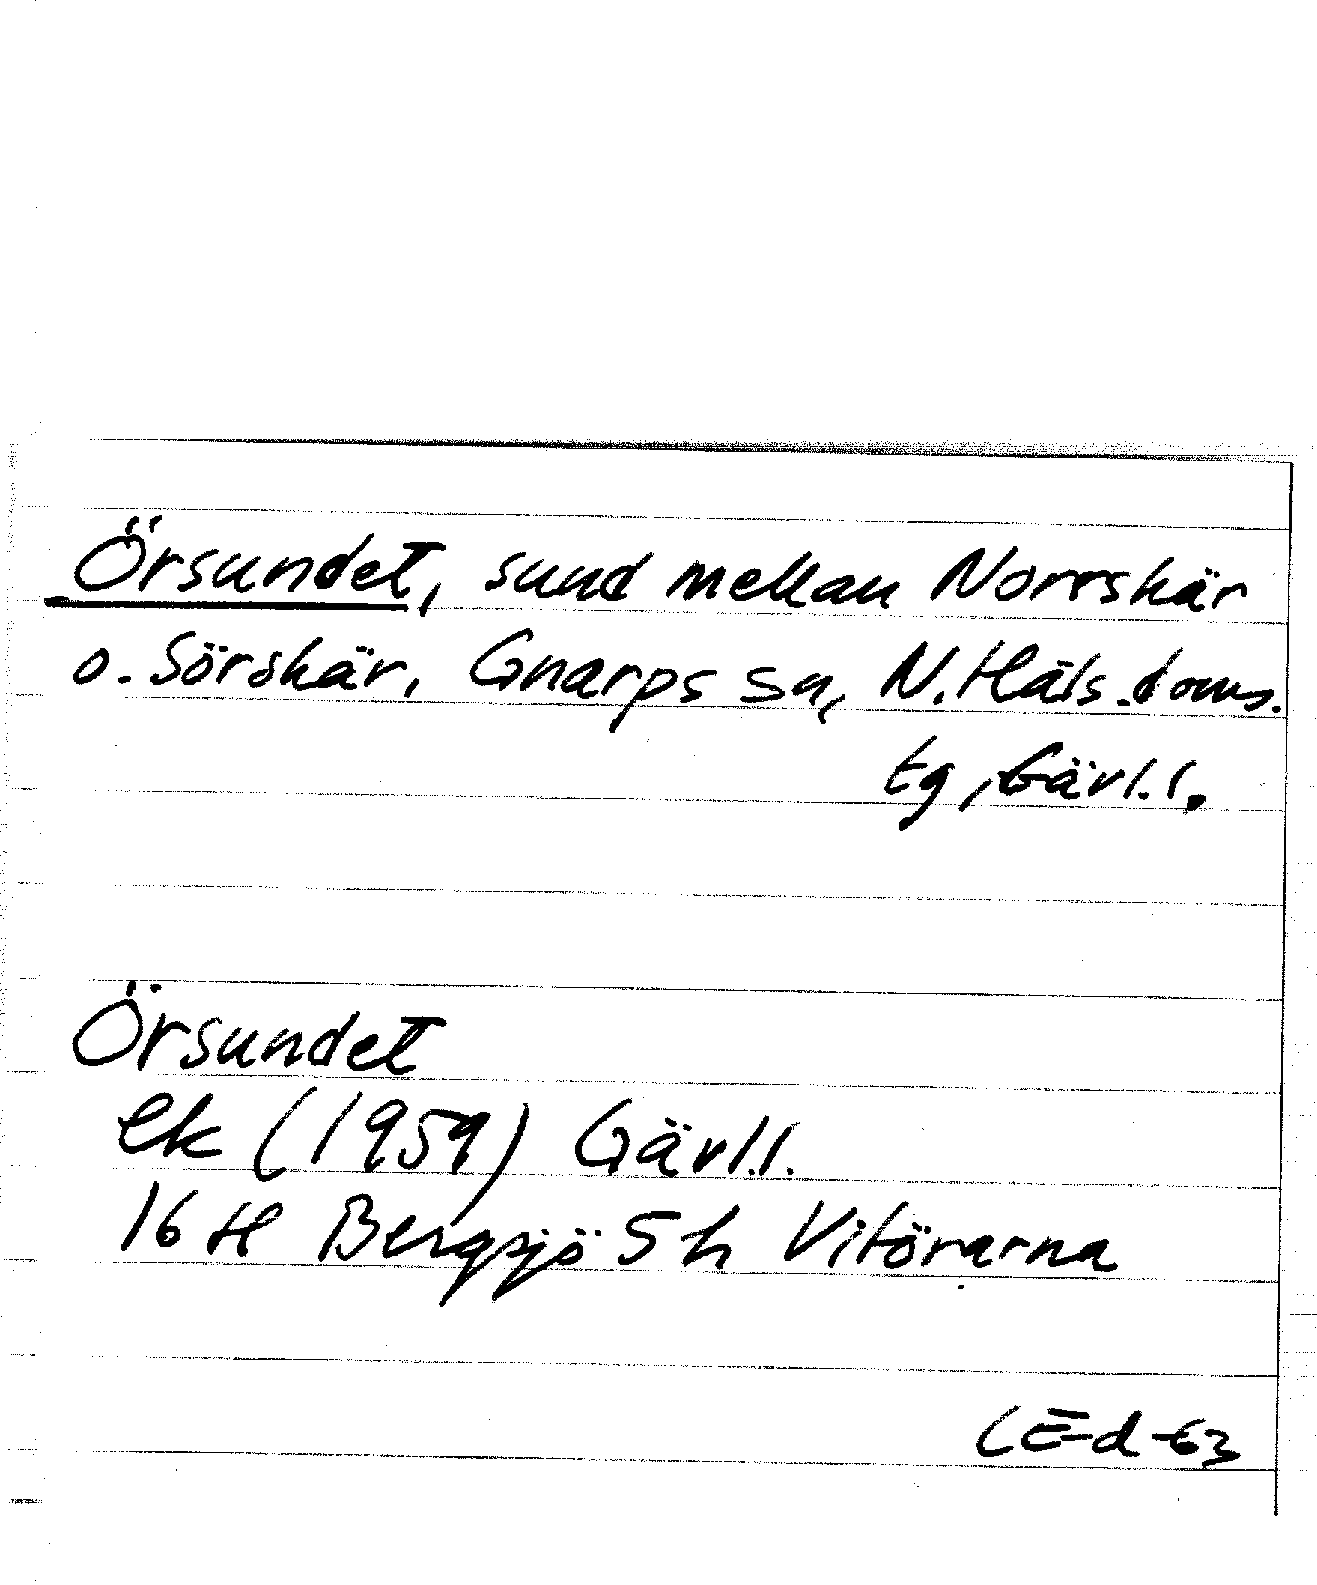 Örsundet, sund mellan Norrskär
o. Sörskär, Gnarps sn, N. Häls. doms.
tg, Gävl.l.
Örsundet
ek (1959) Gävl.l.
16 H Bergsjö 5 h Vitörarna
CE-d -63